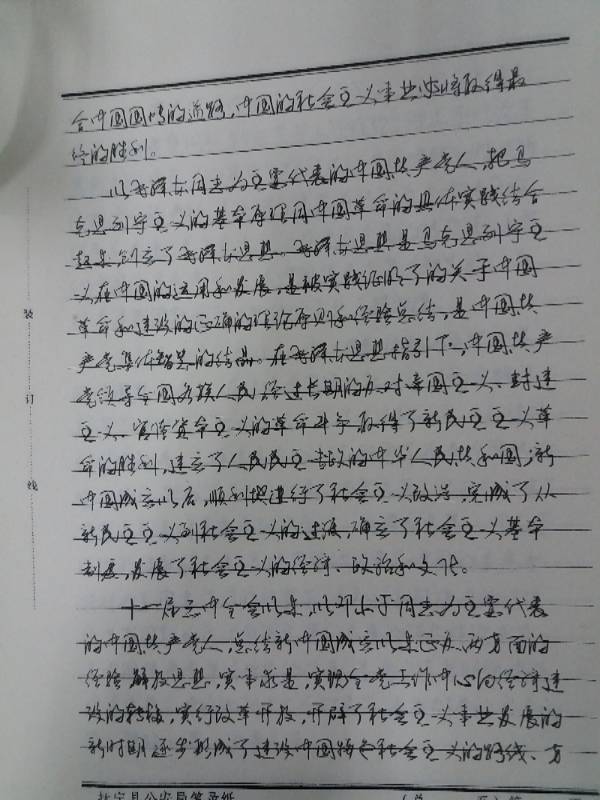 合中国国情的道路，中国的社会主义事业必将取得最
终的胜利。
以毛泽东同志为主要代表的中国共产党人，把马
克思列宁主义的基本原理同中国革命的具体实践结合
起来创立了毛泽东思想。毛泽东思想是马克思列宁主
义在中国的运用和发展，是被实践证明了的关于中国
革命和建设的正确的理论原则和经验总结，是中国共
产党集体智慧的结晶。在毛泽东思想指引下，中国共产
党领导全国各族人民经过长期的反对帝国主义、封建
主义、官僚资本主义的革命斗争取得了新民主主义革
命的胜利，建立了人民民主专政的中华人民共和国；新
中国成立以后，顺利地进行了社会主义改造，完成了从
新民主主义到社会主义的过渡，确立了社会主义基本
制度，发展了社会主义的经济、政治和文化。
十一届三中全会以来，以邓小平同志为主要代表
的中国共产党人，总结新中国成立以来正反两方面的
经验解放思想，实事求是，实现全党工作中心向经济建
设的转移，实行改革开放，开辟了社会主义事业发展的
新时期逐步形成了建设中国特色社会主义的路线、方
装
订
线